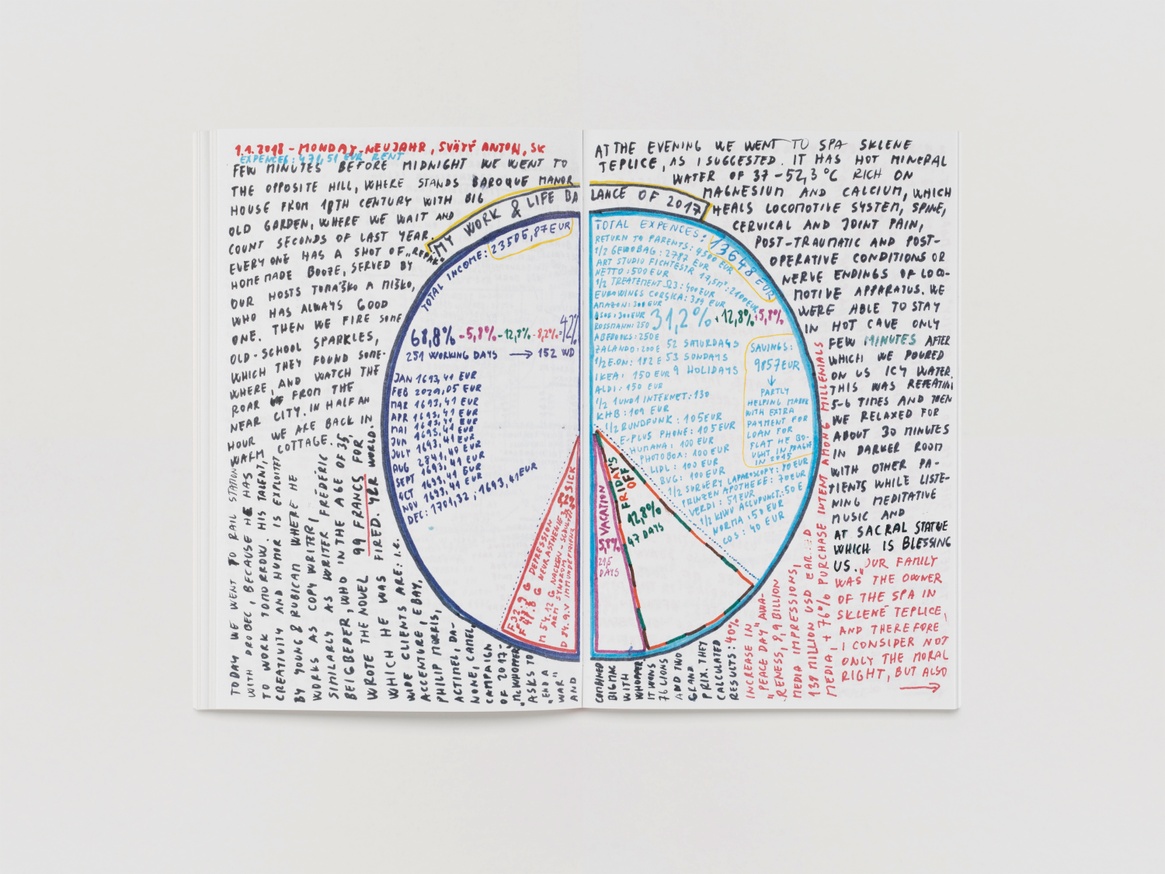 1.1.2018 - MONDAY - NEUJAHR, SVÄTÝ ANTON, SK
EXPENCES: EUR RENT
FEW MINUTES BEFORE MIDNIGHT WE WENT TO
THE OPPOSITE HILL, WHERE STANDS BAROQUE MANOR
HOUSE FROM 18TH CENTURY WITH BIG
OLD GORDEN, WHERE WE WAIT AND
COUNT SECONDS OF LAST YEAR.
EVERYONE HAS A SHOT OF
HOMEMADE BOOZE, SERVED BY
OUR HOSTS TOMAŠKO A MIŠKO,
WHO HAS ALWAYS GOOD
ONE. THEN WE FIRE SOME
OLD-SCHOOL SPARKLES,
WHICH THEY FOUND SOME-
WHERE, AND WATCH THE
ROAR FROM THE
NEAR CITY. IN HALF AN
HOUR WE ARE BACK IN
WARM COTTAGE.
TODAY WE WENT TO RAIL STATION
WITH PROBEC, BECAUSE HE HAS
TO WORK TOMORROW. HIS TALENT,
CREATIVITY AND HUMOR IS EXPLOITED
BY YOUNG & RUBICAN WHERE HE
WORKS AS COPY WRITER,
SIMILARLY AS WRITER FRÉDÉRIC
BEIGBEDER, WHO IN THE AGE OF 35
WROTE THE NOVEL 99 FRANCS FOR
WHICH HE WAS FIRED. Y&R WORLD-
WIDE CLIENTS ARE: I.E.
ACCENTURE, EBAY,
PHILIP MORRIS,
ACTIMEL, DA-
NONE, CAMEL,
CAMPAIGN
OF 2017:
"MCWHOPPER"
ASKS TO
"END A
WAR"
AND
MY WORK & LIFE BALANCE OF 2017
TOTAL INCOME: 23505,87EUR
68,8% -5,8% -12,8% -8,2% =42%
251 WORKING DAYS → 152 WD
JAN 1693,41 EUR
FEB EUR
MAR 1693,41 EUR
APR 1693,41 EUR
MAI 1693,41 EUR
JUN 1693,41 EUR
JULY 1693,41 EUR
AUG EUR
SEPT 1693,41 EUR
OCT 1693,41 EUR
NOV 1693,41 EUR
DEC: 1701,32, 1693,41EUR
SICK
DEPRESSION
NEURASTHENIE
AT THE EVENING WE WENT TO SPA SKLENE
TEPLICE, AS I SUGGESTED. IT HAS HOT MINERAL
WATER OF 37-52,3°C RICH ON
MAGNESIUM AND CALCIUM, WHICH
HEALS LOCOMOTIVE SYSTEM, SPINE,
CERVICAL AND JOINT PAIN,
POST-TRAUMATIC AND POST-
OPERATIVE CONDITIONS OR
NERVE ENDINGS OF LOCO-
MOTIVE APPARATUS. WE
WERE ABLE TO STAY
IN HOT CAVE ONLY
FEW MINUTES AFTER
WHICH WE POURED
ON US ICY WATER.
THIS WAS REPEATING
5-6 TIMES AND THEN
WE RELAXED FOR
ABOUT 30 MINUTES
IN DARKER ROOM
WITH OTHER PA-
TIENTS WHILE LISTE-
NING MEDITATIVE
MUSIC AND
AT SACRAL STATUE
WHICH IS BLESSING
US. "OUR FAMILY
WAS THE OWNER
OF THE SPA IN
SKLENÉ TEPLICE,
AND THEREFORE
I CONSIDER NOT
ONLY THE MORAL
RIGHT, BUT ALSO
→
TOTAL EXPENCES: 13648 EUR
RETURN TO PARENTS: 9500 EUR
1/2 GEWOBAG: 2782 EUR
ART STUDIO FICHTESTR 17,5m²:
NETTO: 500EUR
1/2 TREATEMENT Ω3: 400EUR
EUROWINGS CORSIKA: EUR
AMAGON: 300EUR
31,2% +12,8% +5,8%
ROSSMANN: 250
ABEBOOKS: 250E 52 SATURDAYS
ZALANDO: 200E 53 SUNDAYS
1/2E.ON: 182 E 9 HOLIDAYS
IKEA: 150 EUR
ALDI: 150 EUR
1/2 1UND1 INTERNET: 130
KHB: 109 EUR
1/2 RUNDFUNK: 105EUR
E-PLUS PHONE: 105EUR
HUMANA: 100 EUR
PHOTOBOX: 100 EUR
LIDL: 100 EUR
BVG: 100 EUR
1/2 SURGERY LAPAROSCOPY: 80 EUR
APOTHEKE: 70EUR
VERDI: 51EUR
1/2 KIWU ACCUPUNCT: 50 E
NORMA: 50 EUR
COS: 40 EUR
SAVINGS:
9857EUR
↓
PARTLY
HELPING MAREK
WITH EXTRA
PAYMENT FOR
LOAN FOR
FLAT HE BO-
UGHT IN PRAGH
IN
VACATION
5,8%
DAYS
FRIDAYS
OFF
12,8%
47 DAYS
COMBINED
BIGMAC
WITH
WHOPPER
IT WONS
76 LIONS
AND TWO
GRAND
PRIX. THEY
CALCULATED
RESULTS: 40%
INCREASE IN
"PEACE DAY" AWA-
RENESS, 8,9 BILLION
MEDIA IMPRESSIONS,
138 MILLION USD EAR.:D
MEDIA, + 76% PURCHASE INTENT AMONG MILLENIALS